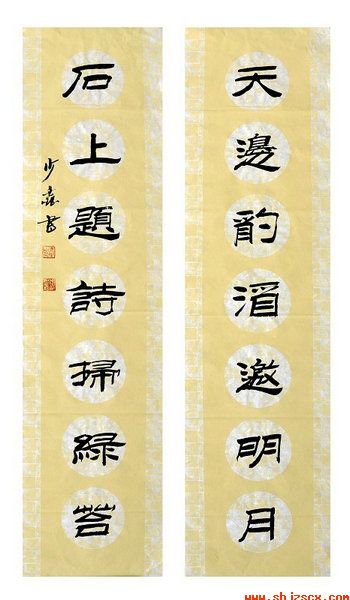 天邊酌酒邀明月
石上題詩掃綠苔
少 書
www.shjzscx.com